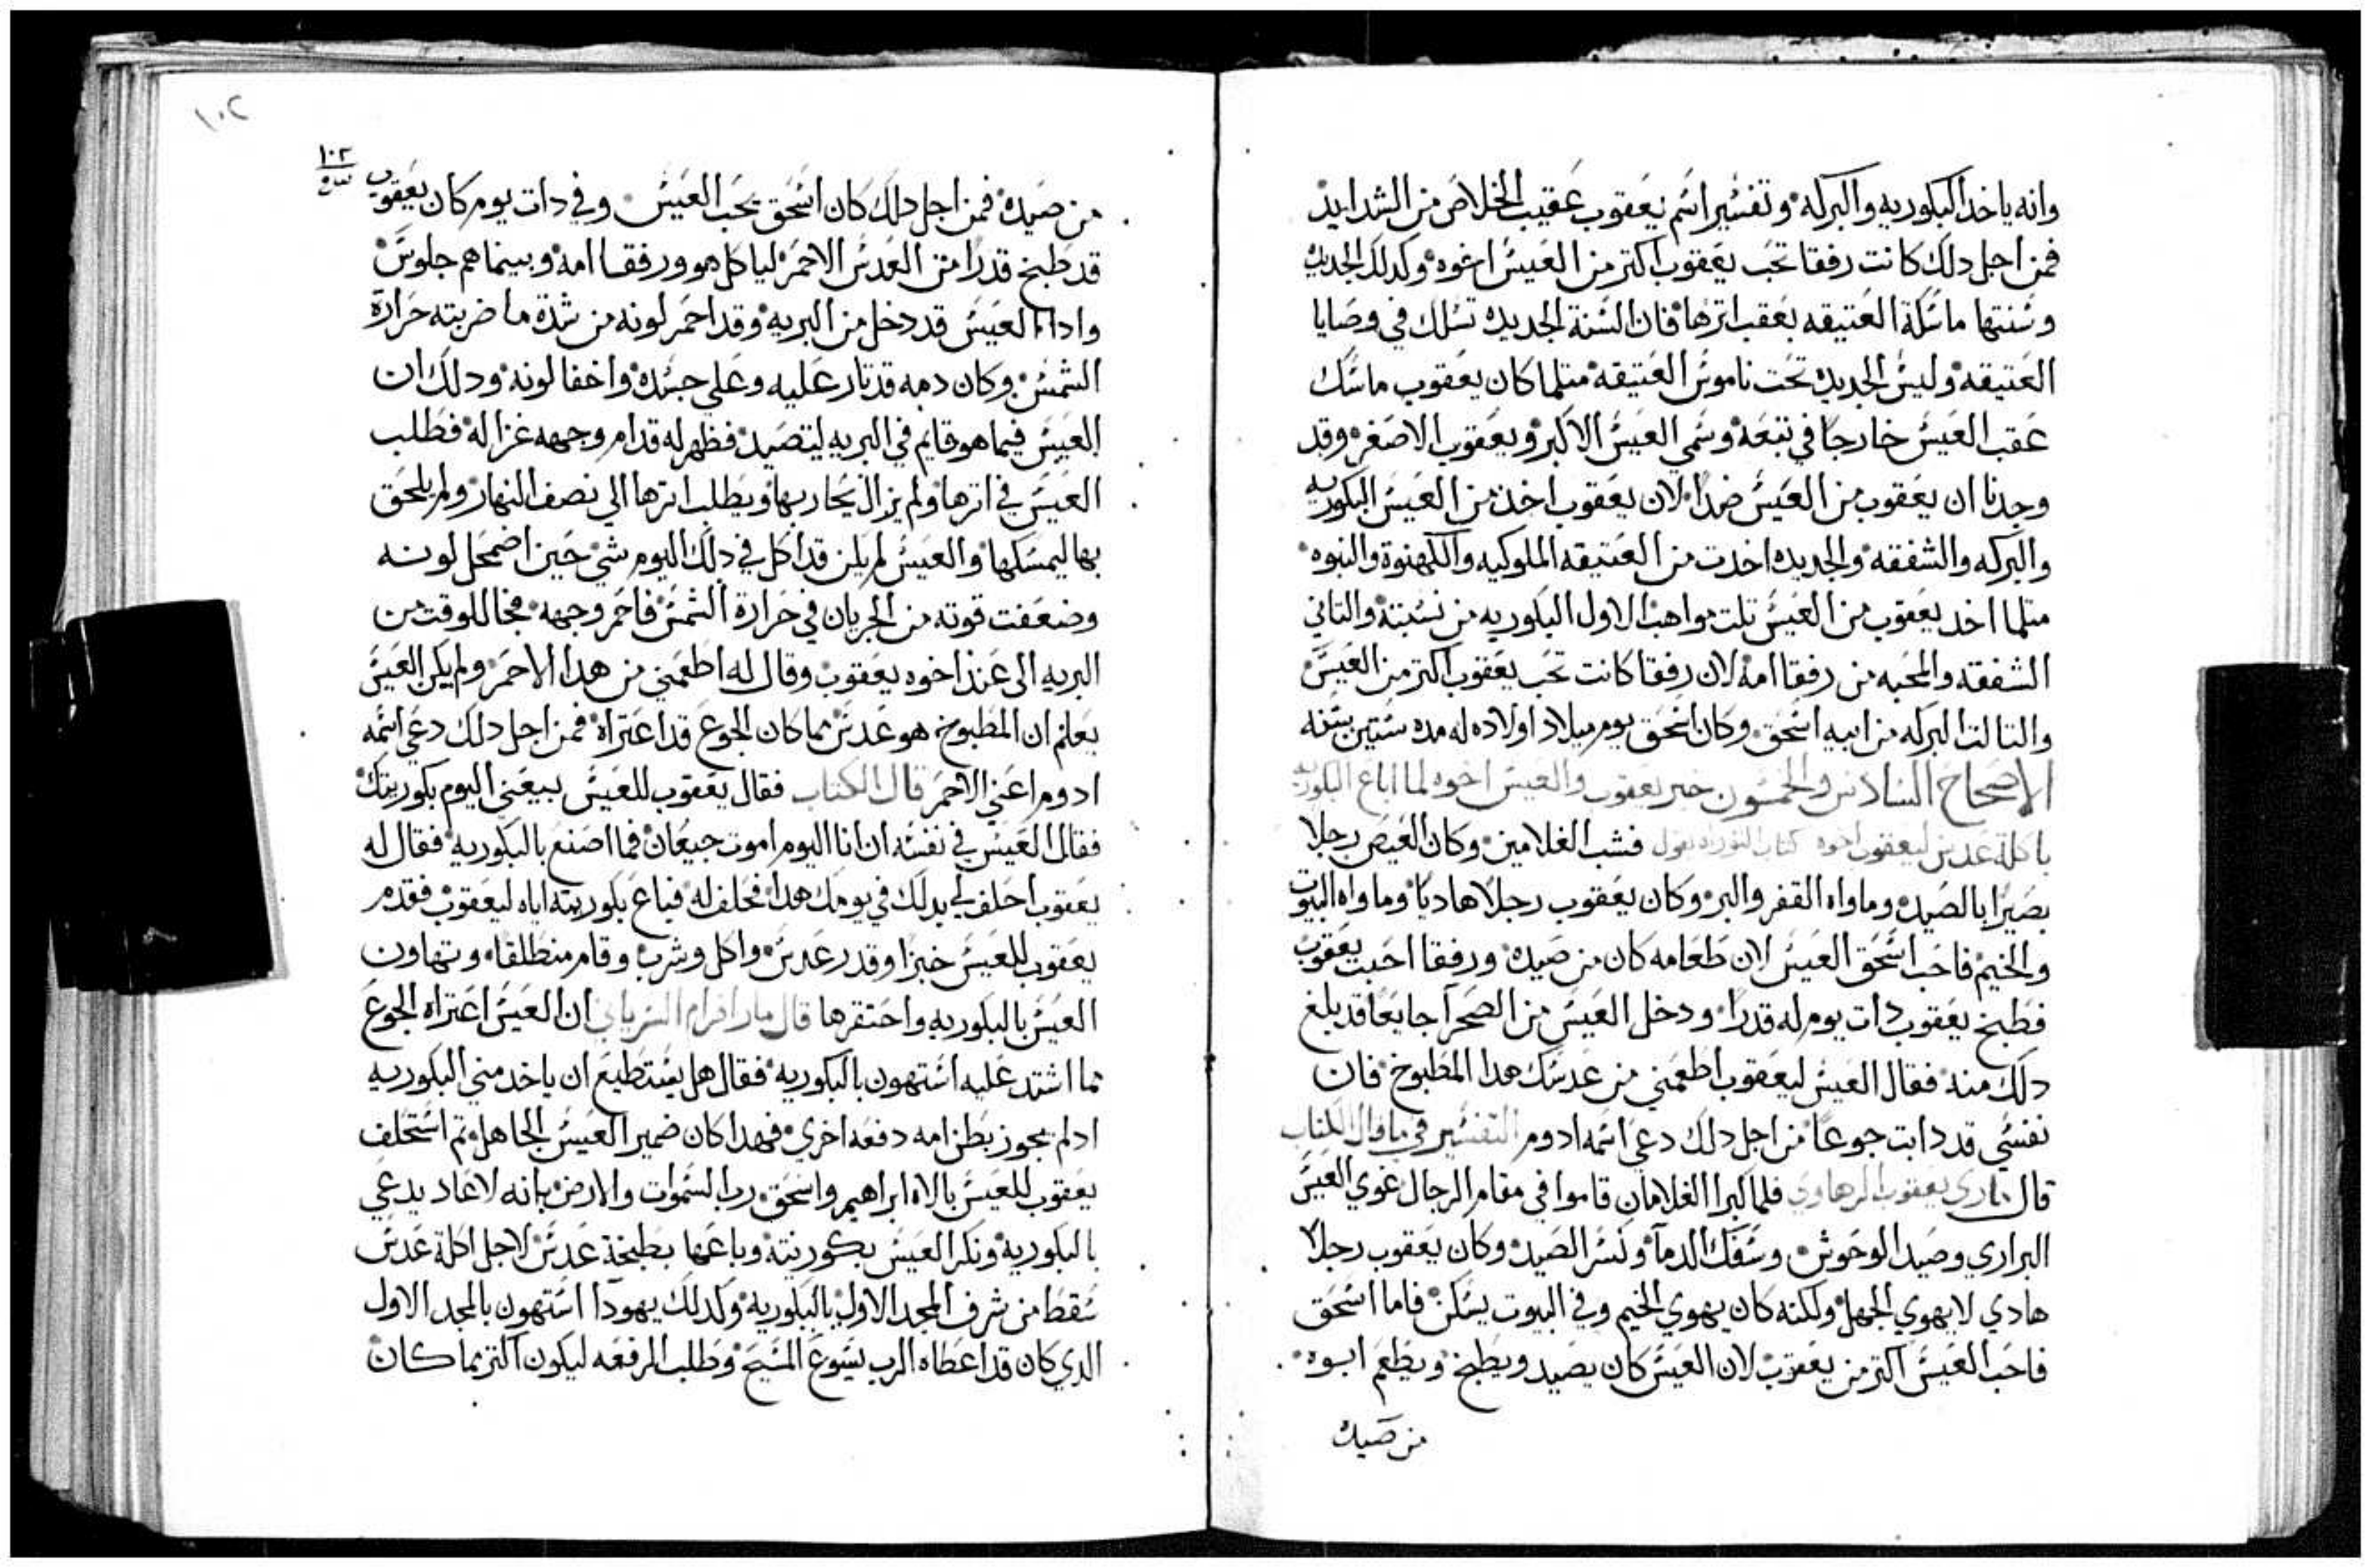 وانه ياخد البكوريه والبركه وتفسير اسم يعقوب عقيب الخلاص من الشدايد
فمن اجل دلك كانت رفقا تحب يعقوب اكتر من العيس اخوه وكدلك الجديده
وسنتها ماسكة العتيقه بعقب اترها فان السنة الجديده تسلك في وصايا
العتيقه وليس الجديده تحت ناموس العتيقه متلما كان يعقوب ماسك
عقب العيس خارجا في تبعه وسمي العيس الاكبر ويعقوب الاصغر وقد
وجدنا ان يعقوب من العيس ضدا لان يعقوب اخد من العيس البكوريه
والبركه والشفقه والجديده اخدت من العتيقه الملوكيه والكهنوة والنبوه
متلما اخد يعقوب من العيس تلت مواهب الاول البكوريه من نسبته والتاني
الشفقه والمحبه من رفقا امه لان رفقا كانت تحب يعقوب اكتر من العيس
والتالت البركه من ابيه اسحق وكان اسحق يوم ميلاد اولاده له مده ستين سنه
الاصحاح السادس والخمسون خبر يعقوب والعيس اخوه لما اباع البكوريه
باكلة عدس ليعقوب اخوه كتاب التوراه يقول فشب الغلامين وكان العيص رجلا
بصيرا بالصيد وماواه القفر والبر وكان يعقوب رجلا هاديا وماواه البيوت
والخيم فاحب اسحق العيس لان طعامه كان من صيده ورفقا احبت يعقوب
فطبخ يعقوب دات يوم له قدرا ودخل العيس من الصحرا جايعا قد بلغ
دلك منه فقال العيس ليعقوب اطعمني من عدسك هدا المطبوخ فان
نفسي قد دابت جوعا من اجل دلك دعي اسمه ادوم التفسير في ما قال الكتاب
قال ماري يعقوب الرهاوي فلما كبرا الغلامان قاموا في مقام الرجال غوي العيس
البراري وصيد الوحوش وسفك الدما وكسر الصيد وكان يعقوب رجلا
هادي لا يهوي الجهل ولكنه كان يهوي الخيم وفي البيوت يسكن فاما اسحق
فاحب العيس اكتر من يعقوب لان العيس كان يصيد ويطبخ ويطعم ابوه
من صيده
١٠٢
١٠٢
من صيده فمن اجل دلك كان اسحق يحب العيس وفي دات يوم كان يعقوب
قد طبخ قدرا من العدس الاحمر لياكل هو ورفقا امه وبينما هم جلوس
وادا العيس قد دخل من البريه وقد احمر لونه من شدة ما ضربته حرارة
الشمس وكان دمه قد تار عليه وعلي جسده واخفا لونه ودلك ان
العيس فيما هو قايم في البريه ليتصيد فظهر له قدام وجهه غزاله فطلب
العيس في اترها ولم يزال يحاربها ويطلب اترها الي نصف النهار ولم يلحق
بها ليمسكها والعيس لم يكن قد اكل في دلك اليوم شي حين اضمحل لونه
وضعفت قوته من الجريان في حرارة الشمس فاحمر وجهه فجا للوقت من
البريه الي عند اخوه يعقوب وقال له اطعمني من هدا الاحمر ولم يكن العيس
يعلم ان المطبوخ هو عدس بما كان الجوع قد اعتراه فمن اجل دلك دعي اسمه
ادوم اعني الاحمر قال الكتاب فقال يعقوب للعيس بيعني اليوم بكوريتك
فقال العيس في نفسه ان انا اليوم اموت جيعان فما اصنع بالبكوريه فقال له
يعقوب احلف لي بدلك في يومك هدا فحلف له فباع بكوريته اياه ليعقوب فقدم
يعقوب للعيس خبزا وقدر عدس واكل وشرب وقام منطلقا وتهاون
العيس بالبكوريه واحتقرها قال مار افرام السرياني ان العيس اعتراه الجوع
مما اشتد عليه استهون بالبكوريه فقال هل يستطيع ان ياخد مني البكوريه
ادلم يجوز بطن امه دفعه اخري فهدا كان ضمير العيس الجاهل تم استحلف
يعقوب للعيس بالاه ابراهيم واسحق رب السموات والارض بانه لا عاد يدعي
بالبكوريه ونكر العيس بكوريته وباعها بطبخة عدس لاجل اكلة عدس
سقط من شرف المجد الاول بالبكوريه وكدلك يهودا استهون بالمجد الاول
الدي كان قد اعطاه الرب يسوع المسيح وطلب المرفعه ليكون اكتر مما كان